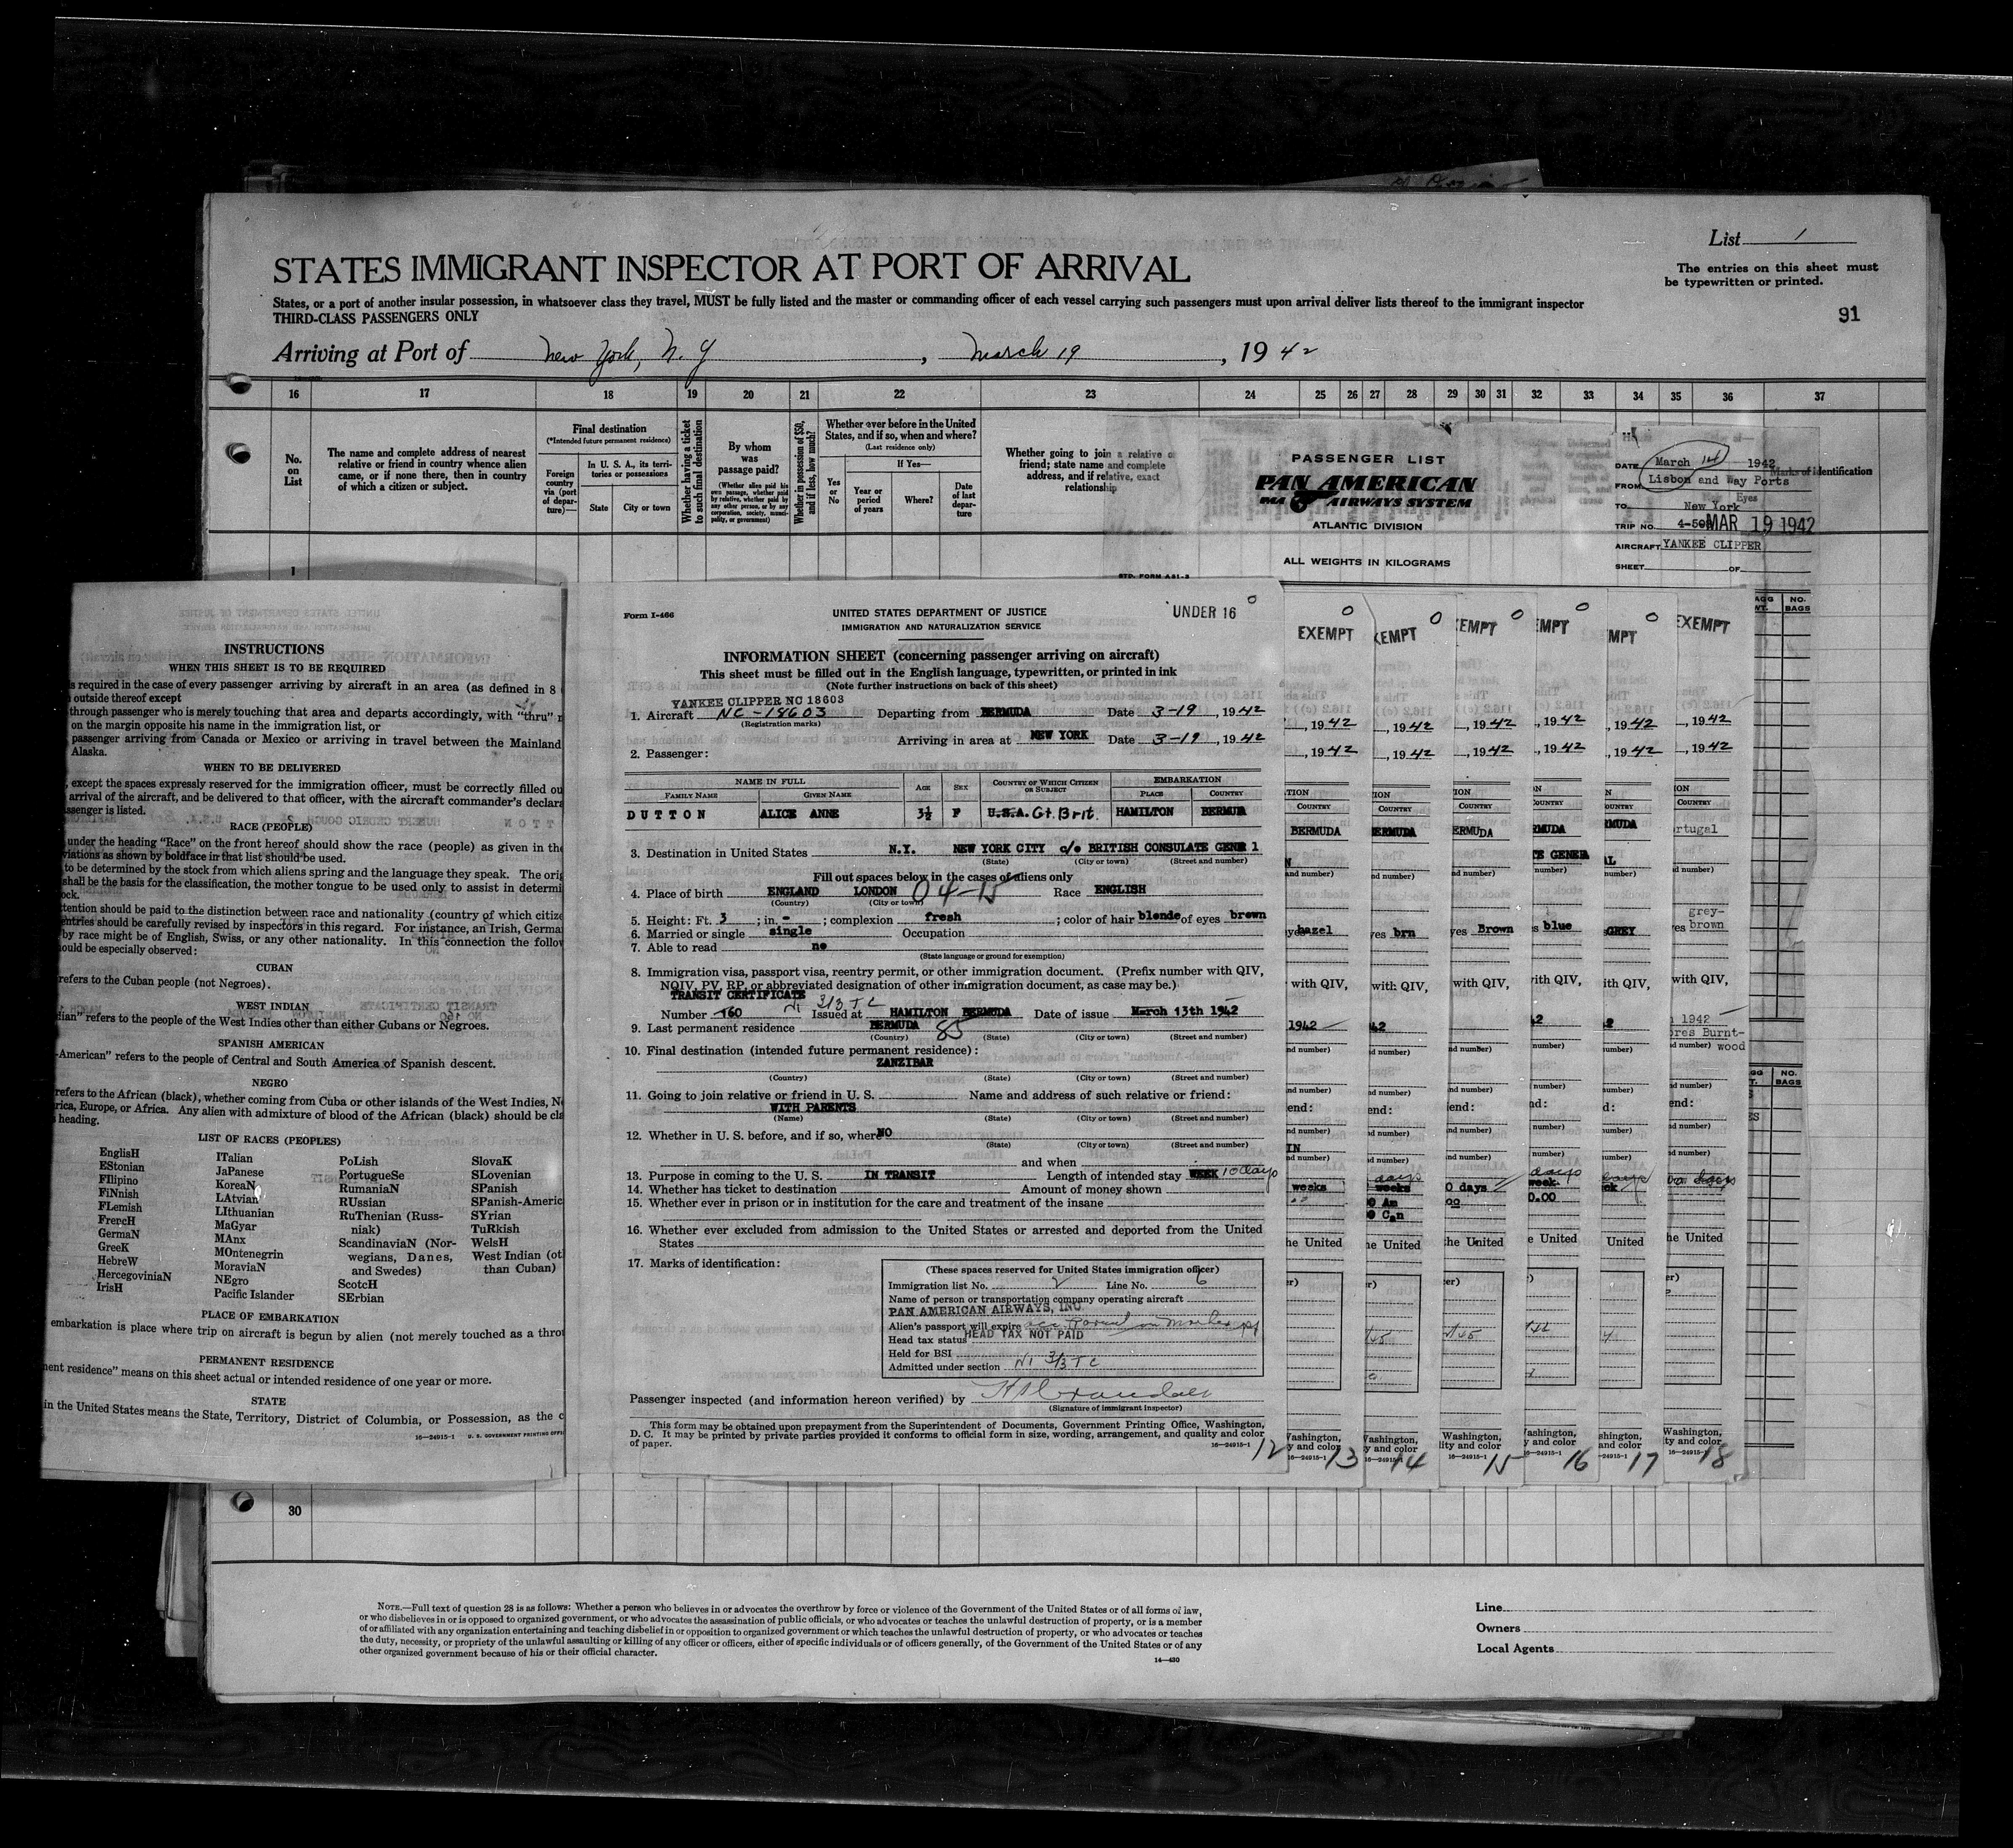 List 1
STATES IMMIGRANT INSPECTOR AT PORT OF ARRIVAL
The entries on this sheet must
be typewritten or printed.
States, or a port of another insular possession, in whatsoever class they travel, MUST be fully listed and the master or commanding officer of each vessel carrying such passengers must upon arrival deliver lists thereof to the immigrant inspector
THIRD-CLASS PASSENGERS ONLY
91
Arriving at Port of New York, N. Y , March 19 , 19 42
16 17 18 19 20 21 22 23 24 25 26 27 28 29 30 31 32 33 34 35 36 37
No.
on
List
The name and complete address of nearest
relative or friend in country whence alien
came, or if none there, then in country
of which a citizen or subject.
Final destination
(*Intended future permanent residence)
Foreign
country
via (port
of depar-
ture)—
In U. S. A., its terri-
tories or possessions
State
City or town
Whether having a ticket
to such final destination
By whom
was
passage paid?
(Whether alien paid his
own passage, whether paid
by relative, whether paid by
any other person, or by any
corporation, society, munici-
pality, or government)
Whether in possession of $50,
and if less, how much?
Whether ever before in the United
States, and if so, when and where?
(Last residence only)
Yes
or
No
If Yes—
Year or
period
of years
Where?
Date
of last
depar-
ture
Whether going to join a relative or
friend; state name and complete
address, and if relative, exact
relationship
PASSENGER LIST
PAN AMERICAN
PAA AIRWAYS SYSTEM
ATLANTIC DIVISION
ALL WEIGHTS IN KILOGRAMS
DATE March 14 1942
Marks of Identification
FROM Lisbon and Way Ports
Eyes
TO New York
TRIP NO. MAR 19 1942
AIRCRAFT YANKEE CLIPPER
SHEET OF
1
INSTRUCTIONS
WHEN THIS SHEET IS TO BE REQUIRED
s required in the case of every passenger arriving by aircraft in an area (as defined in 8
outside thereof except
through passenger who is merely touching that area and departs accordingly, with "thru"
on the margin opposite his name in the immigration list, or
passenger arriving from Canada or Mexico or arriving in travel between the Mainland
Alaska.
WHEN TO BE DELIVERED
, except the spaces expressly reserved for the immigration officer, must be correctly filled ou
arrival of the aircraft, and be delivered to that officer, with the aircraft commander's declar
ssenger is listed.
RACE (PEOPLE)
under the heading "Race" on the front hereof should show the race (people) as given in the
viations as shown by boldface in that list should be used.
to be determined by the stock from which aliens spring and the language they speak. The orig
shall be the basis for the classification, the mother tongue to be used only to assist in determi
ock.
ttention should be paid to the distinction between race and nationality (country of which citize
entries should be carefully revised by inspectors in this regard. For instance, an Irish, Germa
by race might be of English, Swiss, or any other nationality. In this connection the follow
ould be especially observed:
CUBAN
refers to the Cuban people (not Negroes).
WEST INDIAN
dian" refers to the people of the West Indies other than either Cubans or Negroes.
SPANISH AMERICAN
-American" refers to the people of Central and South America of Spanish descent.
NEGRO
refers to the African (black), whether coming from Cuba or other islands of the West Indies, N
rica, Europe, or Africa. Any alien with admixture of blood of the African (black) should be cla
heading.
LIST OF RACES (PEOPLES)
EnglisH
EStonian
FIlipino
FiNnish
FLemish
FrencH
GermaN
GreeK
HebreW
HercegoviniaN
IrisH
ITalian
JaPanese
KoreaN
LAtvian
LIthuanian
MaGyar
MAnx
MOntenegrin
MoraviaN
NEgro
Pacific Islander
PoLish
PortugueSe
RumaniaN
RUssian
RuThenian (Russ-
niak)
ScandinaviaN (Nor-
wegians, Danes,
and Swedes)
ScotcH
SErbian
SlovaK
SLovenian
SPanish
SPanish-Americ
SYrian
TuRkish
WelsH
West Indian (ot
than Cuban)
PLACE OF EMBARKATION
embarkation is place where trip on aircraft is begun by alien (not merely touched as a thro
PERMANENT RESIDENCE
nent residence" means on this sheet actual or intended residence of one year or more.
STATE
in the United States means the State, Territory, District of Columbia, or Possession, as the c
16—24915-1 U. S. GOVERNMENT PRINTING OFFI
Form I-466
UNITED STATES DEPARTMENT OF JUSTICE
IMMIGRATION AND NATURALIZATION SERVICE
UNDER 16
INFORMATION SHEET (concerning passenger arriving on aircraft)
This sheet must be filled out in the English language, typewritten, or printed in ink
(Note further instructions on back of this sheet)
YANKEE CLIPPER NC 18603
1. Aircraft NC-18603 Departing from BERMUDA Date 3-19, 1942
(Registration marks)
Arriving in area at NEW YORK Date 3-19, 1942
2. Passenger:
NAME IN FULL
FAMILY NAME GIVEN NAME
AGE SEX
COUNTRY OF WHICH CITIZEN
OR SUBJECT
EMBARKATION
PLACE COUNTRY
DUTTON ALICE ANNE 3½ F U.S.A. Gt. Brit. HAMILTON BERMUDA
3. Destination in United States N.Y. NEW YORK CITY c/o BRITISH CONSULATE GENER l
(State) (City or town) (Street and number)
Fill out spaces below in the cases of aliens only
4. Place of birth ENGLAND LONDON 04-15 Race ENGLISH
(Country) (City or town)
5. Height: Ft. 3 ; in. - ; complexion fresh ; color of hair blonde of eyes brown
6. Married or single single Occupation
7. Able to read no
(State language or ground for exemption)
8. Immigration visa, passport visa, reentry permit, or other immigration document. (Prefix number with QIV,
NQIV, PV, RP, or abbreviated designation of other immigration document, as case may be.)
TRANSIT CERTIFICATE 3/3 TC
Number 160 Issued at HAMILTON BERMUDA Date of issue March 13th 1942
9. Last permanent residence BERMUDA 85
(Country) (State) (City or town) (Street and number)
10. Final destination (intended future permanent residence):
ZANZIBAR
(Country) (State) (City or town) (Street and number)
11. Going to join relative or friend in U. S. Name and address of such relative or friend:
WITH PARENTS
(Name) (State) (City or town) (Street and number)
12. Whether in U. S. before, and if so, where NO
(State) (City or town) (Street and number)
and when
13. Purpose in coming to the U. S. IN TRANSIT Length of intended stay WEEK 10 days
14. Whether has ticket to destination Amount of money shown
15. Whether ever in prison or in institution for the care and treatment of the insane
16. Whether ever excluded from admission to the United States or arrested and deported from the United
States
17. Marks of identification:
(These spaces reserved for United States immigration officer)
Immigration list No. 2 Line No. 6
Name of person or transportation company operating aircraft
PAN AMERICAN AIRWAYS, INC.
Alien's passport will expire
Head tax status HEAD TAX NOT PAID
Held for BSI
Admitted under section 3/3 TC
Passenger inspected (and information hereon verified) by
(Signature of immigrant inspector)
This form may be obtained upon prepayment from the Superintendent of Documents, Government Printing Office, Washington,
D. C. It may be printed by private parties provided it conforms to official form in size, wording, arrangement, and quality and color
of paper.
16—24915-1
12 13 14 15 16 17 18
EXEMPT
30
NOTE.—Full text of question 28 is as follows: Whether a person who believes in or advocates the overthrow by force or violence of the Government of the United States or of all forms of law,
or who disbelieves in or is opposed to organized government, or who advocates the assassination of public officials, or who advocates or teaches the unlawful destruction of property, or is a member
of or affiliated with any organization entertaining and teaching disbelief in or opposition to organized government or which teaches the unlawful destruction of property, or who advocates or teaches
the duty, necessity, or propriety of the unlawful assaulting or killing of any officer or officers, either of specific individuals or of officers generally, of the Government of the United States or of any
other organized government because of his or their official character.
14—430
Line
Owners
Local Agents